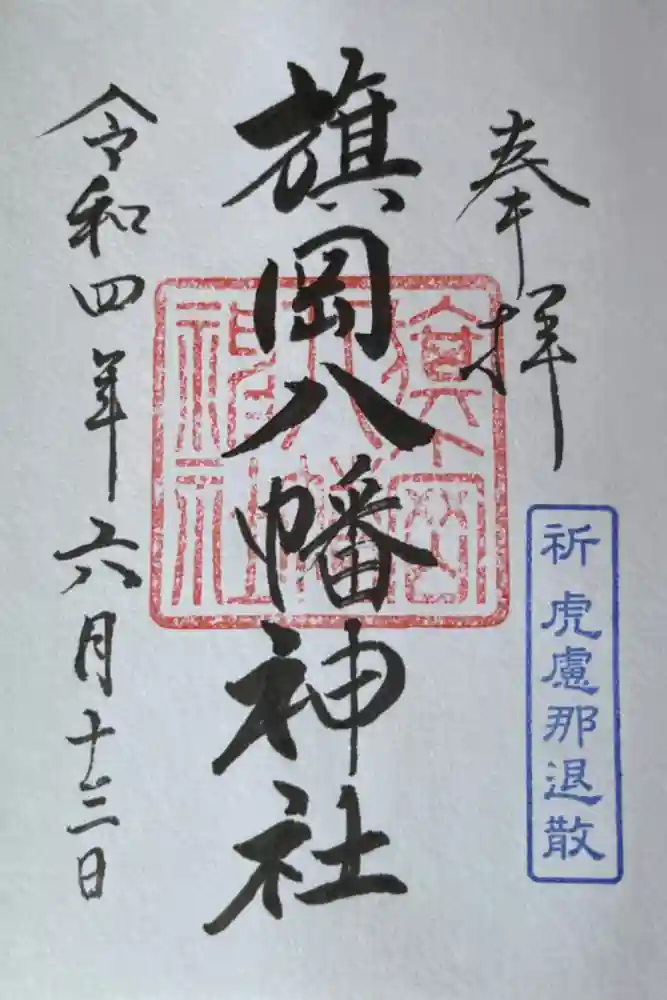 奉拝
祈 虎慮那退散
旗岡八幡神社
旗岡八幡神社
令和四年六月十三日